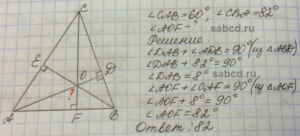 C
∠CAB=60°, ∠CBA=82°
∠AOF-?
Решение
sabcd.ru
∠DAB+∠ADB=90° (из △ABD)
∠DAB+82°=90°
∠DAB=8°
sabcd.ru
∠AOF+∠OAF=90° (из △AOF)
∠AOF+8°=90°
∠AOF=82°
sabcd.ru
Ответ: 82
E
D
O
?
A
F
B